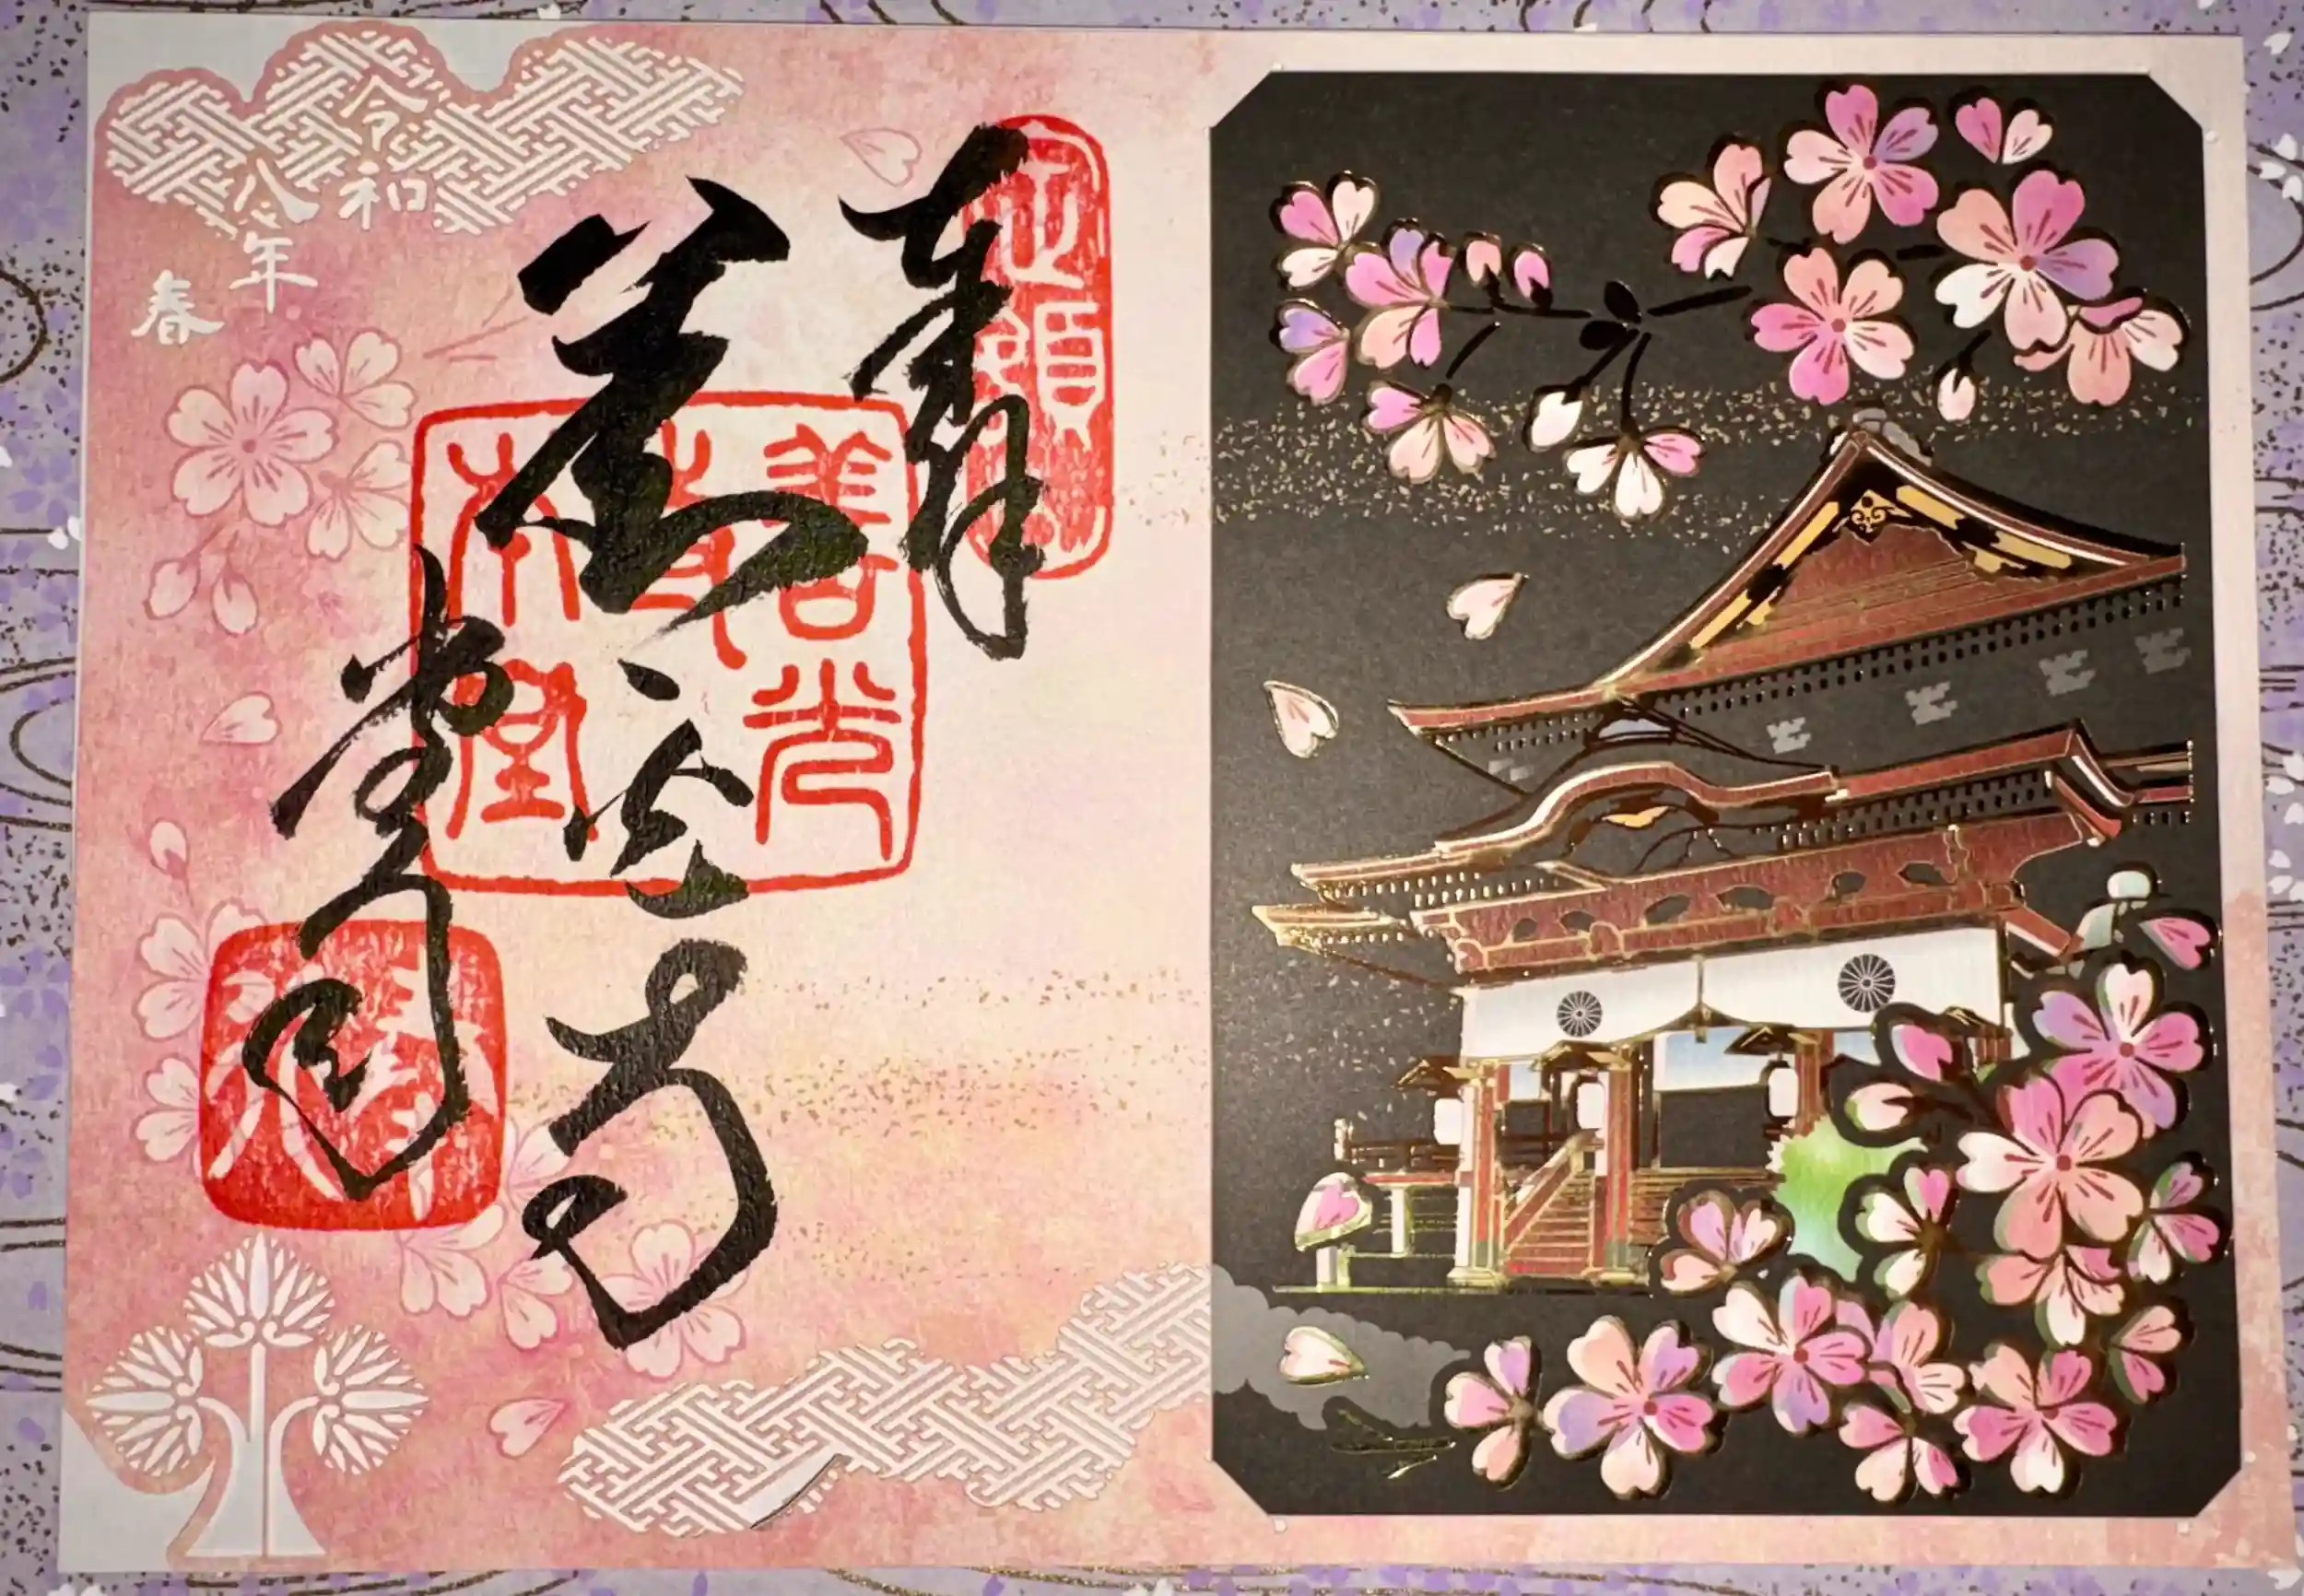 奉拝
善光寺
善光
寺
本堂
令和
八年
春